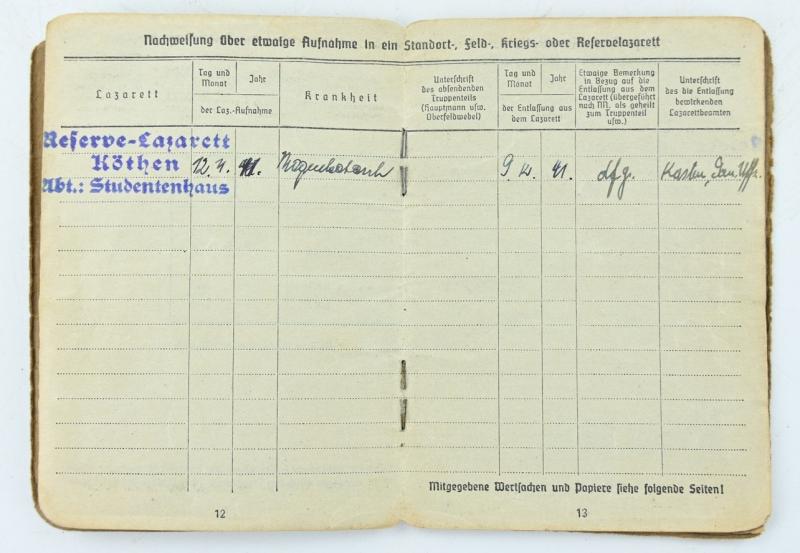 Nachweisung über etwaige Aufnahme in ein Standort-, Feld-, Kriegs- oder Reservelazarett
Lazarett
Tag und Monat
Jahr
der Laz.-Aufnahme
Krankheit
Unterschrift
des absendenden
Truppenteils
(Hauptmann usw.
Oberfeldwebel)
Tag und
Monat
Jahr
der Entlassung aus
dem Lazarett
Etwaige Bemerkung
in Bezug auf die
Entlassung aus dem
Lazarett (übergeführt
nach NN, als geheilt
zum Truppenteil
usw.)
Unterschrift
des die Entlassung
bewirkenden
Lazarettbeamten
Reserve-Lazarett
Köthen
Abt.: Studentenhaus
41.
Magenkatarrh
9
41.
dfg.
Mitgegebene Wertsachen und Papiere siehe folgende Seiten!
12
13